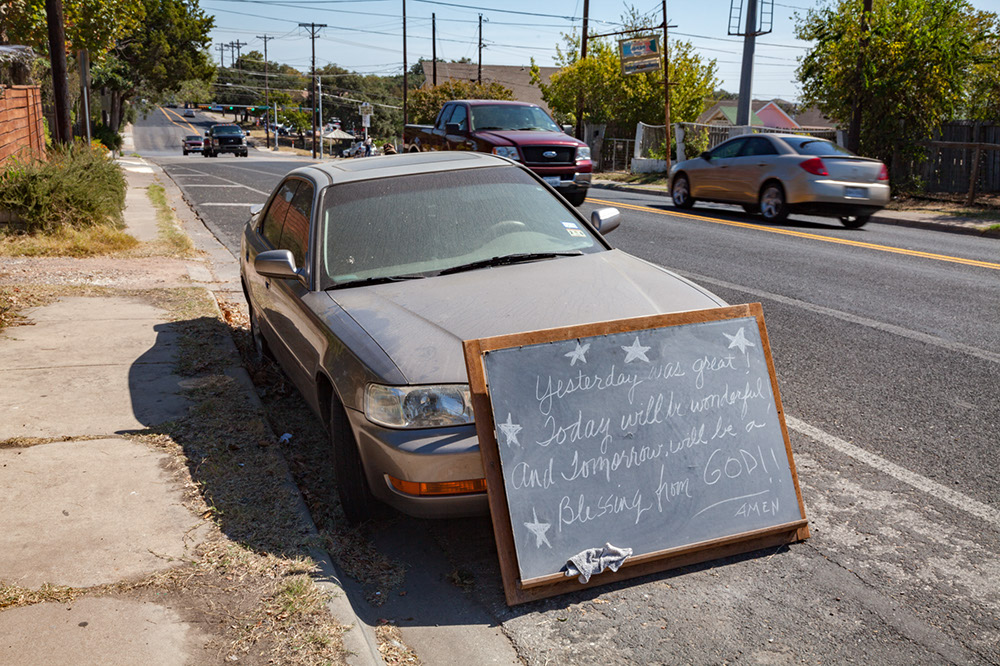 Yesterday was great!
Today will be wonderful,
And Tomorrow, will be a
Blessing from GOD!!
AMEN